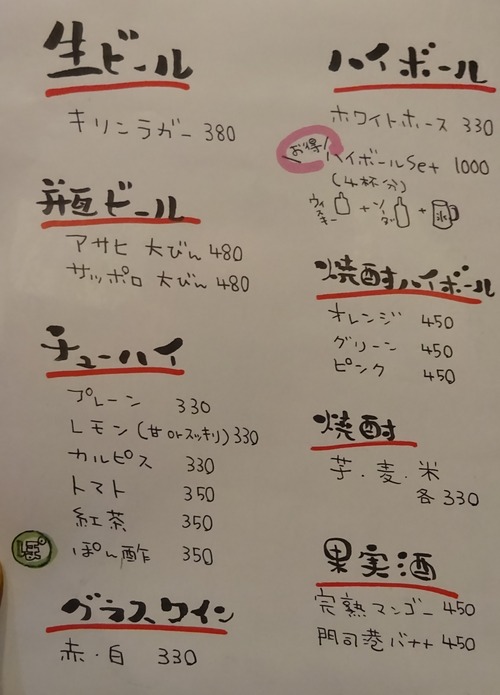 生ビール
キリンラガー 380
瓶ビール
アサヒ 大びん 480
サッポロ 大びん 480
チューハイ
プレーン 330
レモン(甘orスッキリ) 330
カルピス 330
トマト 350
紅茶 350
ぽん酢 350
グラスワイン
赤・白 330
ハイボール
ホワイトホース 330
お得!
ハイボールSet 1000
(4杯分)
ウィスキー + ソーダ + 氷
焼酎ハイボール
オレンジ 450
グリーン 450
ピンク 450
焼酎
芋・麦・米
各330
果実酒
完熟マンゴー 450
門司港バナナ 450